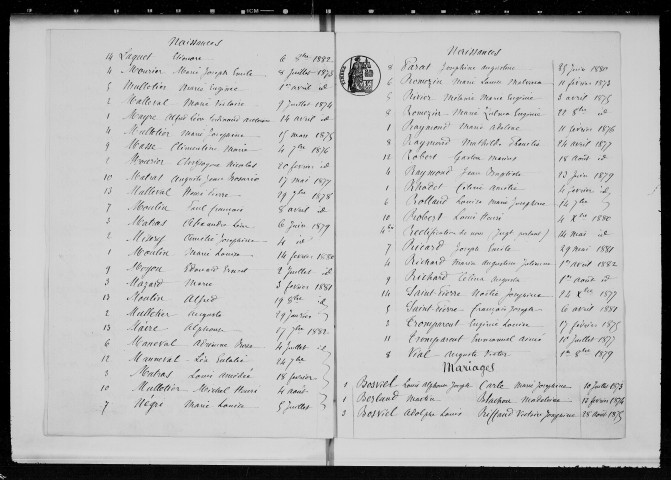 Naissances
14 Laquet Eléonore 6 8bre 1882
4 Mourier Marie Joseph Emile 8 juillet 1873
5 Mulletier Marie Eugénie 1er avril id
2 Malleval Marie Victoire 9 juillet 1874
1 14 avril id
4 Mulletier Marie Joséphine 15 mars 1875
9 Masse Clémentine Marie 4 7bre 1876
2 Mercier Nicolas 20 février id
10 Matras Auguste Jean 17 mai 1877
13 Malleval 29 9bre 1878
7 Moulin Paul François 8 avril id
3 Matras Alexandre 6 juin 1879
2 Misery Camille Joséphine 4 id
1 Moulin Marie Louise 14 février 1880
9 Moyon Edouard Ernest 2 juillet id
3 Mazard Marie 3 février 1881
13 Moulin Alfred 19 8bre id
2 Mulletier Auguste 29 janvier
13 Maire Alphonse 17 7bre 1882
6 Maneval Adrienne Rose 4 juillet id
12 Manneval Léa Eulalie 24 7bre
3 Matras Louis Amédée 18 février
10 Mulletier Michel Henri 4 août
7 Nègre Marie Louise 5 juillet
Naissances
8 Parat Joséphine Augustine 25 juin 1880
6 Romezin Marie Louise 11 février 1873
5 Rivier Mélanie Marie Eugénie 3 avril 1875
8 Romezin Marie Eugénie 21 8bre id
1 Raymond Marie Adeline 11 février 1876
8 Raymond Mathilde 24 avril 1877
12 Robert Gaston 18 août id
4 Raymond Jean Baptiste 23 juin 1879
1 Amélie 4 février id
6 Rolland Louise Marie Joséphine 14 7bre
10 Robert Louis Henri 4 Xbre 1880
Rectification de nom 14 mai id
7 Ricard Joseph Emile 29 mai 1881
4 Richard Marie Augustine 1er août 1882
9 Richard Célina Augusta 1er août id
14 Saint Pierre Noélie Joséphine 24 Xbre 1877
5 Saint Pierre François Joseph 6 avril 1881
2 Tromparent Eugénie Louise 17 février 1875
11 Tromparent Emmanuel 10 juillet 1877
8 Vial Auguste Victor 1er 8bre 1879
Mariages
1 Bosviel Louis Alphonse Joseph Carle Marie Joséphine 10 juillet 1873
1 Berlaud Martin Blachon Madeleine 12 février 1874
3 Bosviel Adolphe Louis Riffard Victoire Joséphine 28 août 1875